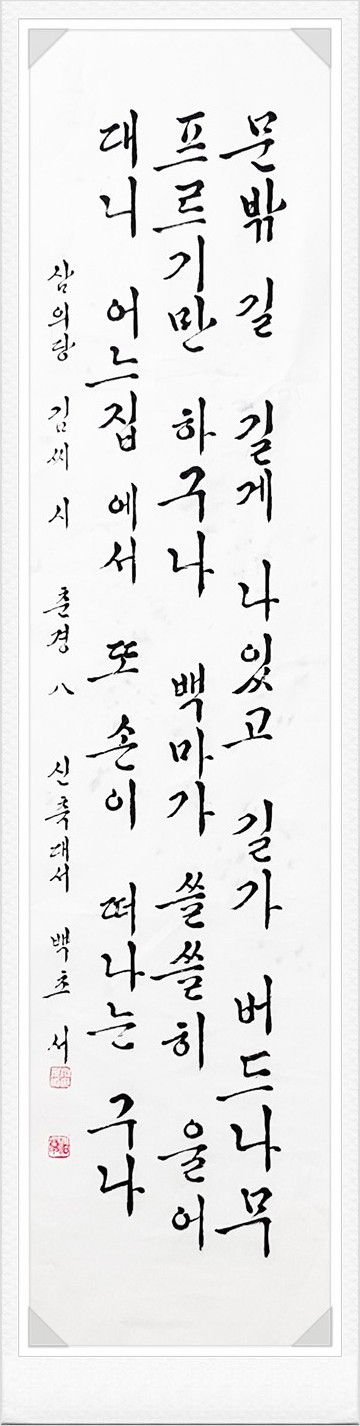 문밖 길 길게 나있고 길가 버드나무
프르기만 하구나 백마가 쓸쓸히 울어
대니 어느집 에서 또 손이 떠나는 구나
삼의당 김씨 시 춘경 八 신축대서 백초 서